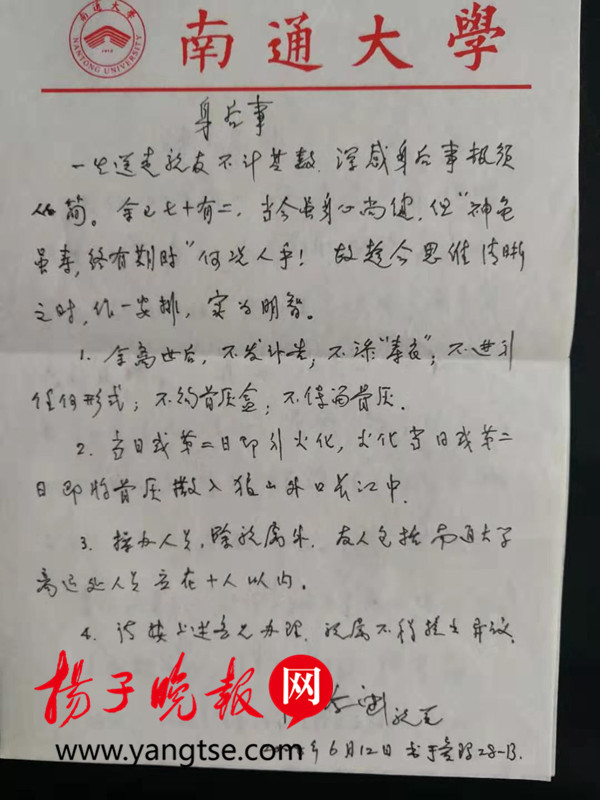 南通大學
NANTONG UNIVERSITY
身后事
一生送走親友不计其数,深感身后事报须
从简。余已七十有二,当今虽身心尚健,但“神龟
虽寿,终有期时”何况人乎!故趁今思维清晰
之时,作一安排,实为明智。
1. 余离世后,不发讣告;不添“寿衣”;不进行
任何形式;不约骨灰盒;不保留骨灰。
2. 当日或第二日即行火化,火化当日或第二
日即将骨灰撒入狼山外口长江中。
3. 接办人员,除親属外,友人包括南通大学
离退处人员应在十人以内。
4. 请按上述意见办理,親属不得持之异议。
揚子晚報网
www.yangtse.com
年6月12日 书于 28-B.